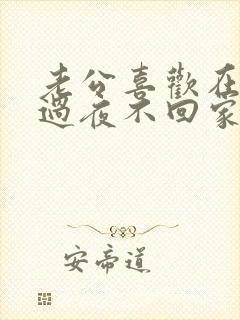 老公喜歡在
過夜不回家
安帝道